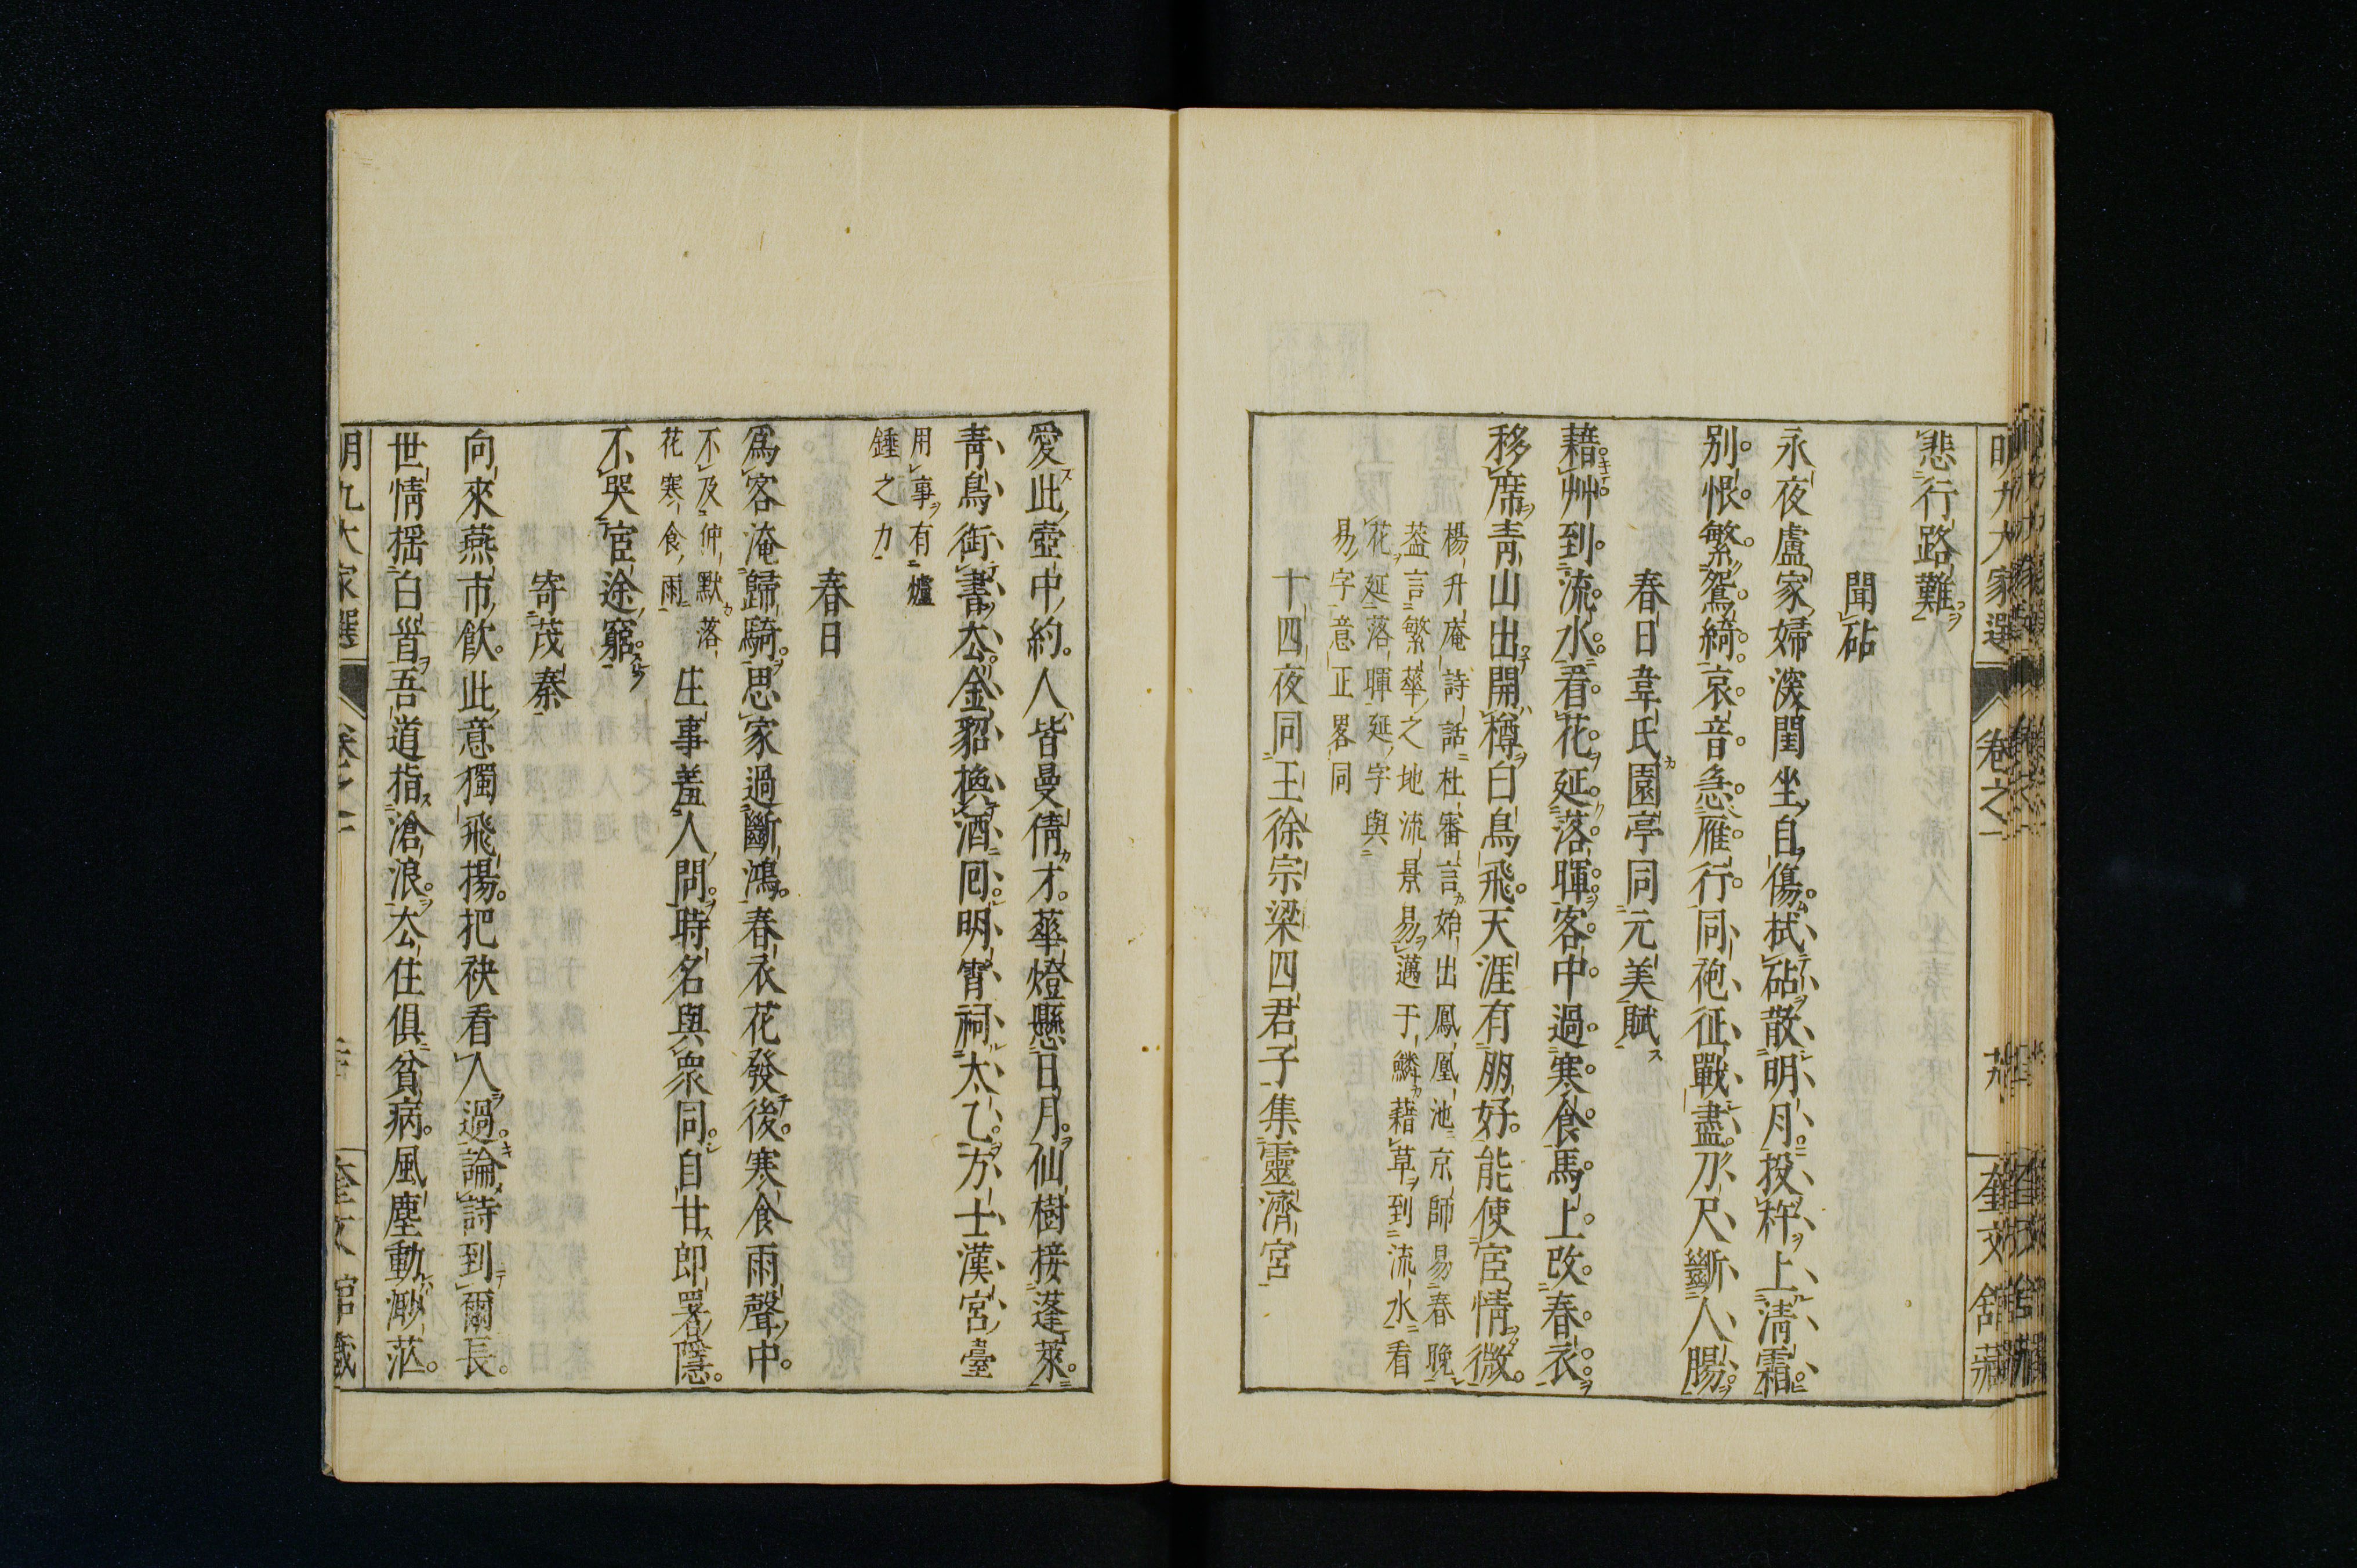 明九大家選 卷之一 奎文館藏
悲行路難
聞砧
永夜盧家婦深閨坐自傷拭砧散明月投杵上清霜
別恨繁鴛綺哀音急雁行同袍征戰盡刀尺斷人腸
春日韋氏園亭同元美賦
藉艸到流水看花延落暉客中過寒食馬上改春衣
移席青山出開樽白鳥飛天涯有朋好能使宦情微
楊升庵詩話杜審言始出鳳凰池京師易春晚
葢言繁華之地流景易邁于鱗藉草到流水看
花延落暉延字與
易字意正畧同
十四夜同王徐宗梁四君子集靈濟宮
愛此壺中約人皆曼倩才華燈懸日月仙樹接蓬萊
青鳥銜書去金貂換酒回明宵祠太乙方士漢宮臺
用事有爐
錘之力
春日
爲客淹歸騎思家過斷鴻春衣花發後寒食雨聲中
不及仲默落
花寒食雨
生事羞人問時名與衆同自甘郎署隱
不哭宦途窮
寄茂秦
向來燕市飲此意獨飛揚把袂看人過論詩到爾長
世情搖白首吾道指滄浪去住俱貧病風塵動渺茫
明九大家選 卷之一 奎文館藏